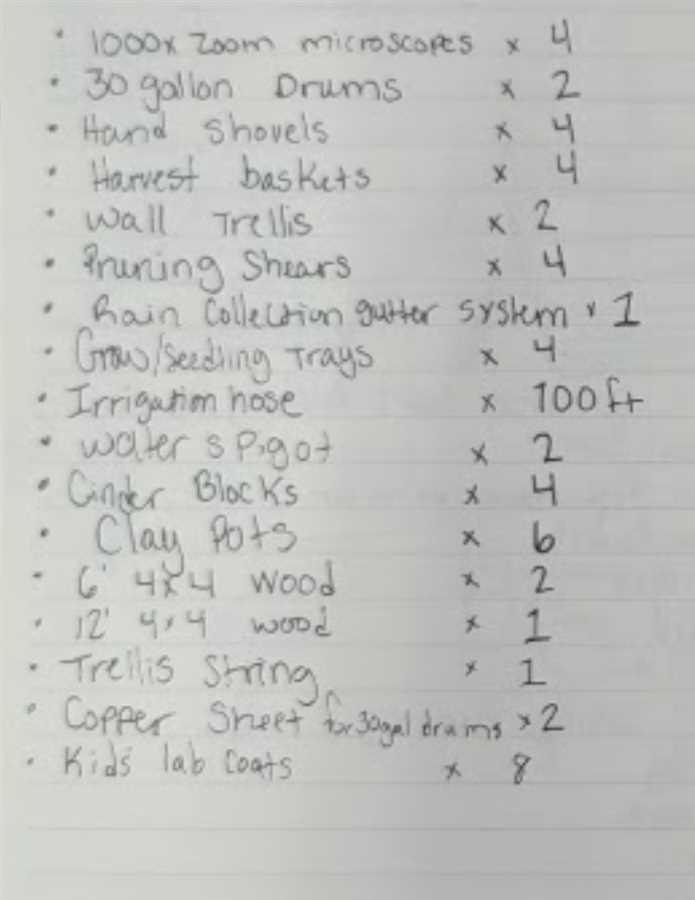 • 1000x Zoom microscopes x 4
• 30 gallon Drums x 2
• Hand Shovels x 4
• Harvest baskets x 4
• Wall Trellis x 2
• Pruning Shears x 4
• Rain Collection gutter system x 1
• Grow/Seedling Trays x 4
• Irrigation hose x 100ft
• Water spigot x 2
• Cinder Blocks x 4
• Clay Pots x 6
• 6' 4x4 wood x 2
• 12' 4x4 wood x 1
• Trellis String x 1
• Copper Sheet for 30gal drums x 2
• Kids lab coats x 8